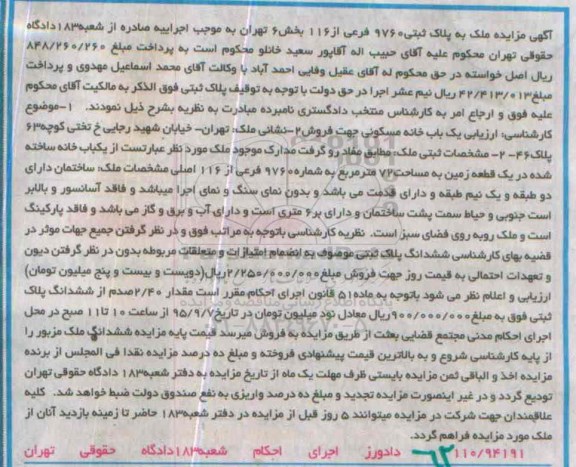 آگهی مزایده ملک به پلاک ثبتی۹۷۶۰ فرعی از۱۱۶ بخش۶ تهران به موجب اجراییه صادره از شعبه۱۸۳دادگاه
حقوقی تهران محکوم علیه آقای حبیب اله آقاپور سعید خانلو محکوم است به پرداخت مبلغ ۸۴۸/۲۶۰/۲۶۰
ریال اصل خواسته در حق محکوم له آقای عقیل وفایی احمد آباد با وکالت آقای محمد اسماعیل مهدوی و پرداخت
مبلغ۴۲/۴۱۳/۰۱۳ ریال نیم عشر اجرا در حق دولت با توجه به توقیف پلاک ثبتی فوق الذکر به مالکیت آقای محکوم
علیه فوق و ارجاع امر به کارشناس منتخب دادگستری نامبرده مبادرت به نظریه بشرح ذیل نمودند. ۱-موضوع
کارشناسی: ارزیابی یک باب خانه مسکونی جهت فروش۲-نشانی ملک: تهران- خیابان شهید رجایی خ تختی کوچه۶۳
پلاک۴۶- ۲- مشخصات ثبتی ملک: مطابق مفاد رو گرفت مدارک موجود ملک مورد نظر عبارتست از یکباب خانه ساخته
شده در یک قطعه زمین به مساحت۷۲ مترمربع به شماره۹۷۶۰ فرعی از ۱۱۶ اصلی مشخصات ملک: ساختمان دارای
دو طبقه و یک نیم طبقه و دارای قدمت می باشد و بدون نمای سنگ و نمای اجرا میباشد و فاقد آسانسور و بالابر
است جنوبی و حیاط سمت پشت ساختمان و دارای بر۶ متری است و دارای آب و برق و گاز می باشد و فاقد پارکینگ
است و ملک روبه روی فضای سبز است. نظریه کارشناسی باتوجه به مراتب فوق و در نظر گرفتن جمیع جهات موثر در
قضیه بهای کارشناسی ششدانگ پلاک ثبتی موصوف به انضمام امتیازات و متعلقات مربوطه بدون در نظر گرفتن دیون
و تعهدات احتمالی به قیمت روز جهت فروش مبلغ۲/۲۵۰/۰۰۰/۰۰۰ریال(دویست و بیست و پنج میلیون تومان)
ارزیابی و اعلام نظر می شود باتوجه به ماده۵۱ قانون اجرای احکام مقرر است مقدار ۲/۴۰صدم از ششدانگ پلاک
ثبتی فوق به مبلغ۹۰۰/۰۰۰/۰۰۰ریال معادل نود میلیون تومان در تاریخ۹۵/۹/۷ از ساعت ۱۰ تا۱۱ صبح در محل
اجرای احکام مدنی مجتمع قضایی بعثت از طریق مزایده به فروش میرسد قیمت پایه مزایده ششدانگ ملک مزبور را
از پایه کارشناسی شروع و به بالاترین قیمت پیشنهادی فروخته و مبلغ ده درصد مزایده نقدا فی المجلس از برنده
مزایده اخذ و الباقی ثمن مزایده بایستی ظرف مهلت یک ماه از تاریخ مزایده به دفتر شعبه۱۸۳ دادگاه حقوقی تهران
تودیع گردد و در غیر اینصورت مزایده تجدید و مبلغ ده درصد واریزی به نفع صندوق دولت ضبط خواهد شد. کلیه
علاقمندان جهت شرکت در مزایده میتوانند ۵ روز قبل از مزایده در دفتر شعبه۱۸۳ حاضر تا زمینه بازدید آنان از
ملک مورد مزایده فراهم گردد.
۱۱۰/۹۴۱۹۱ دادورز اجرای احکام شعبه۱۸۳دادگاه حقوقی تهران